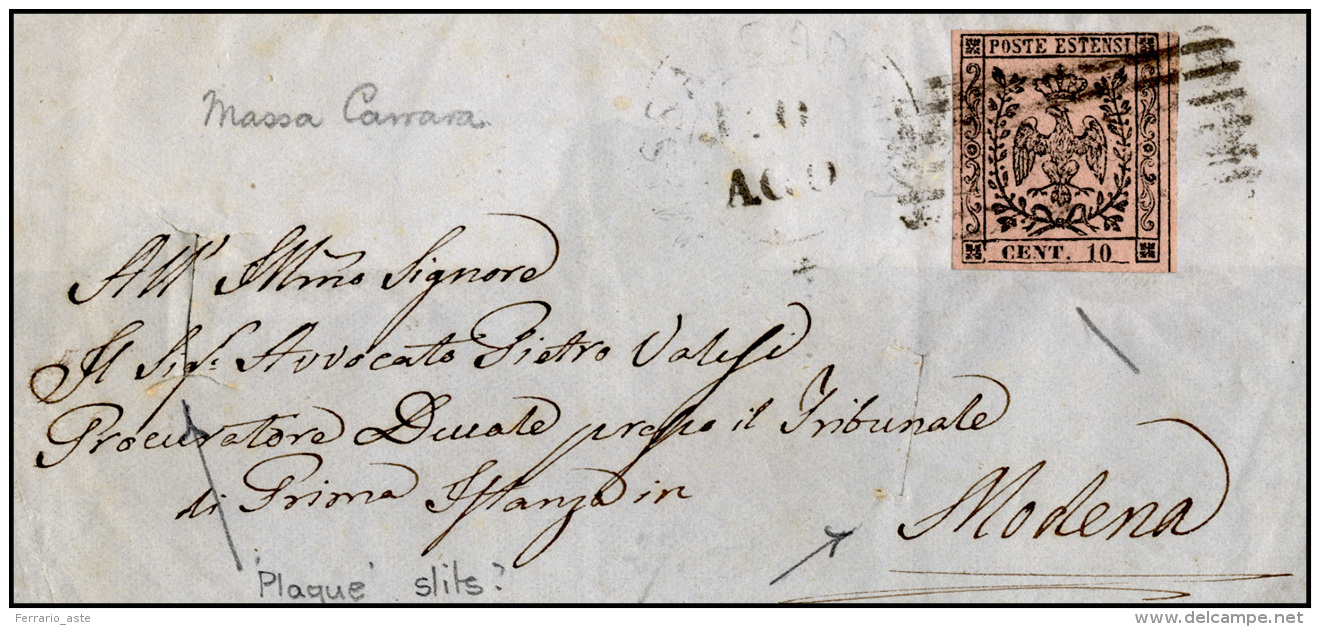 POSTE ESTENSI
Massa Carrara
AGO
CENT. 10
All' Illmo Signore
Il Sigr. Avvocato Pietro Valesi
Procuratore Ducale presso il Tribunale
di Prima Istanza in
Modena
'Plaque' slits?
Ferrario_aste
delcampe.net